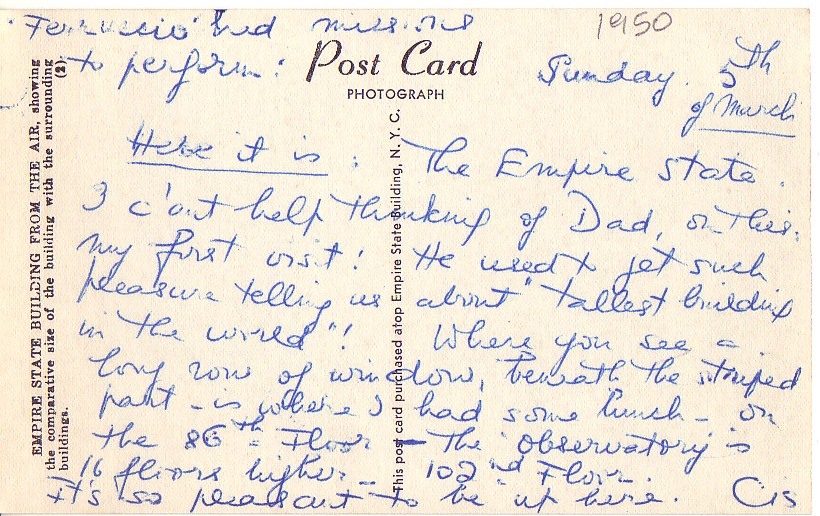 1950
Ferruccio had missions
to perform:
Post Card
PHOTOGRAPH
Sunday. 5th
of March
Here it is: The Empire State.
I c'ant help thinking of Dad, on this:
my first visit! He used to get such
pleasure telling us about "tallest building
in the world"! Where you see a
long row of window, beneath the striped
part - is where I had some lunch - on
the 86th Floor - The observatory is
16 floors higher - 102nd Floor.
It's so pleasant to be up here. Cis
EMPIRE STATE BUILDING FROM THE AIR, showing
the comparative size of the building with the surrounding
buildings. (2)
This post card purchased atop Empire State Building, N. Y. C.